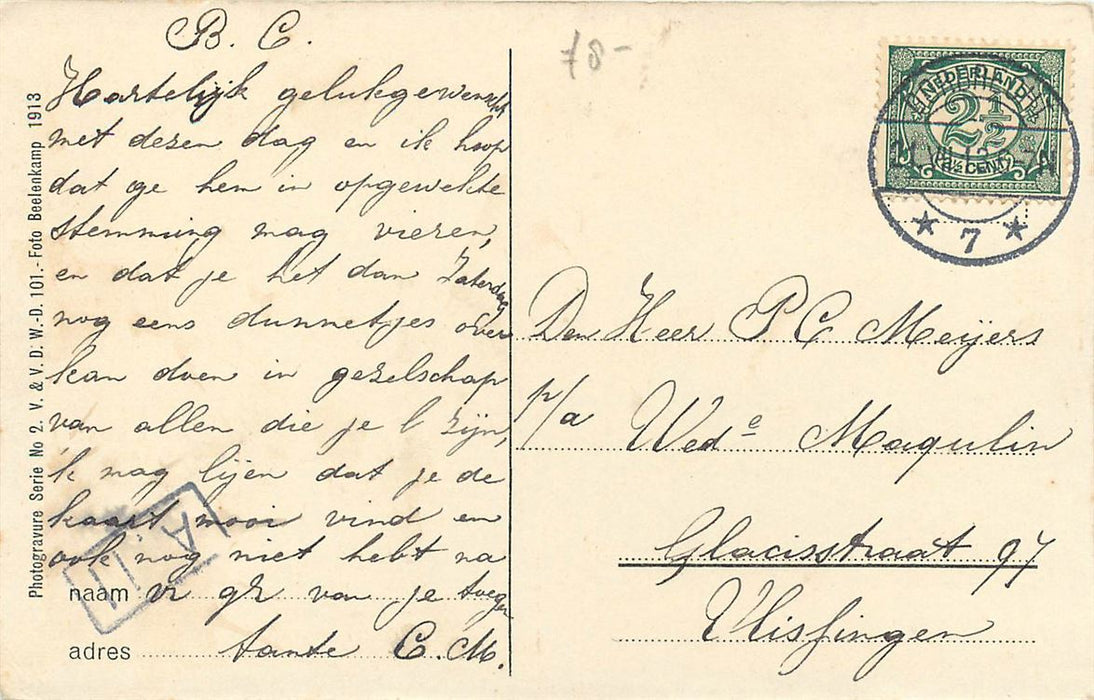 B. C.
Hartelijk gelukgewenscht
met dezen dag en ik hoop
dat ge hem in opgewekte
stemming mag vieren,
en dat je het dan Zaterdag
nog eens dunnetjes over
kan doen in gezelschap
van allen die je l zijn,
'k mag lijen dat je de
kaart mooi vind en
ook nog niet hebt na
naam vr gr van je toegen
adres tante C. M.
Photogravure Serie No 2. V. & V. D. W.-D. 101.- Foto Beelenkamp 1913
78-
NEDERLAND
2 1/2
2½ CENT
7
Den Heer P C Meijers
p/a Wed e Maqulin
Glacisstraat 97
Vlissingen
A